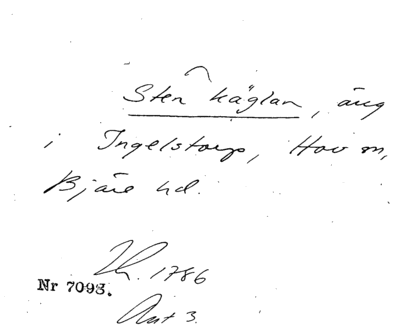 Sten käglan, äng
i Ingelstorp, Hov sn,
Bjäre hd.
Lh. 1786
Nr 7093.
Akt 3.